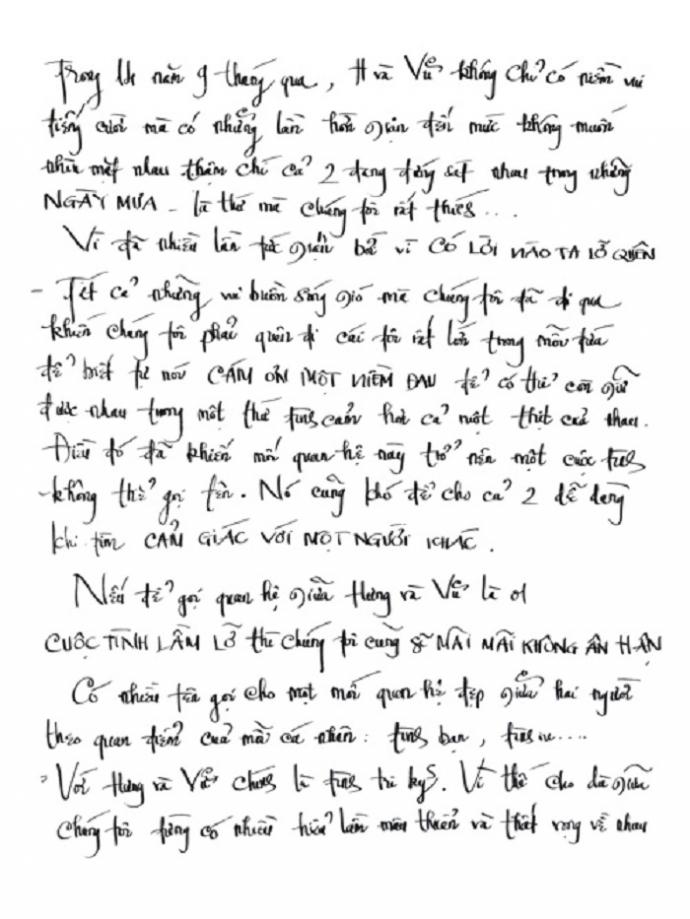 Trong năm 9 tháng qua, H và Vũ không chỉ có niềm vui
tiếng cười mà có những lần hờn giận đến mức không muốn
nhìn mặt nhau thậm chí cả 2 đang đứng sát nhau trong những
NGÀY MƯA - là thứ mà chúng tôi rất thích...
Vì đã nhiều lần tức giận bởi vì CÓ LỜI NÀO TA LỠ QUÊN
- Tất cả những vui buồn sóng gió mà chúng tôi đã đi qua
khiến chúng tôi phải quên đi cái tôi rất lớn trong mỗi đứa
để biết tự nói CÁM ƠN MỘT NIỀM ĐAU để có thể còn giữ
được nhau trong một thứ tình cảm hơn cả một thịt của nhau.
Điều đó đã khiến mối quan hệ này trở nên một cuộc tình
không thể gọi tên. Nó cũng khó để cho cả 2 dễ dàng
khi tìm CẢM GIÁC VỚI MỘT NGƯỜI KHÁC.
Nếu để gọi quan hệ giữa Hưng và Vũ là 01
CUỘC TÌNH LẦM LỠ thì chúng tôi cũng sẽ MÃI MÃI KHÔNG ÂN HẬN
Có nhiều tên gọi cho một mối quan hệ đẹp giữa hai người
theo quan điểm của mỗi cá nhân: tình bạn, tình....
Với Hưng và Vũ chúng là tình tri kỷ. Vì thế cho dù giữa
chúng tôi từng có nhiều hiểu lầm mâu thuẫn và thất vọng về nhau